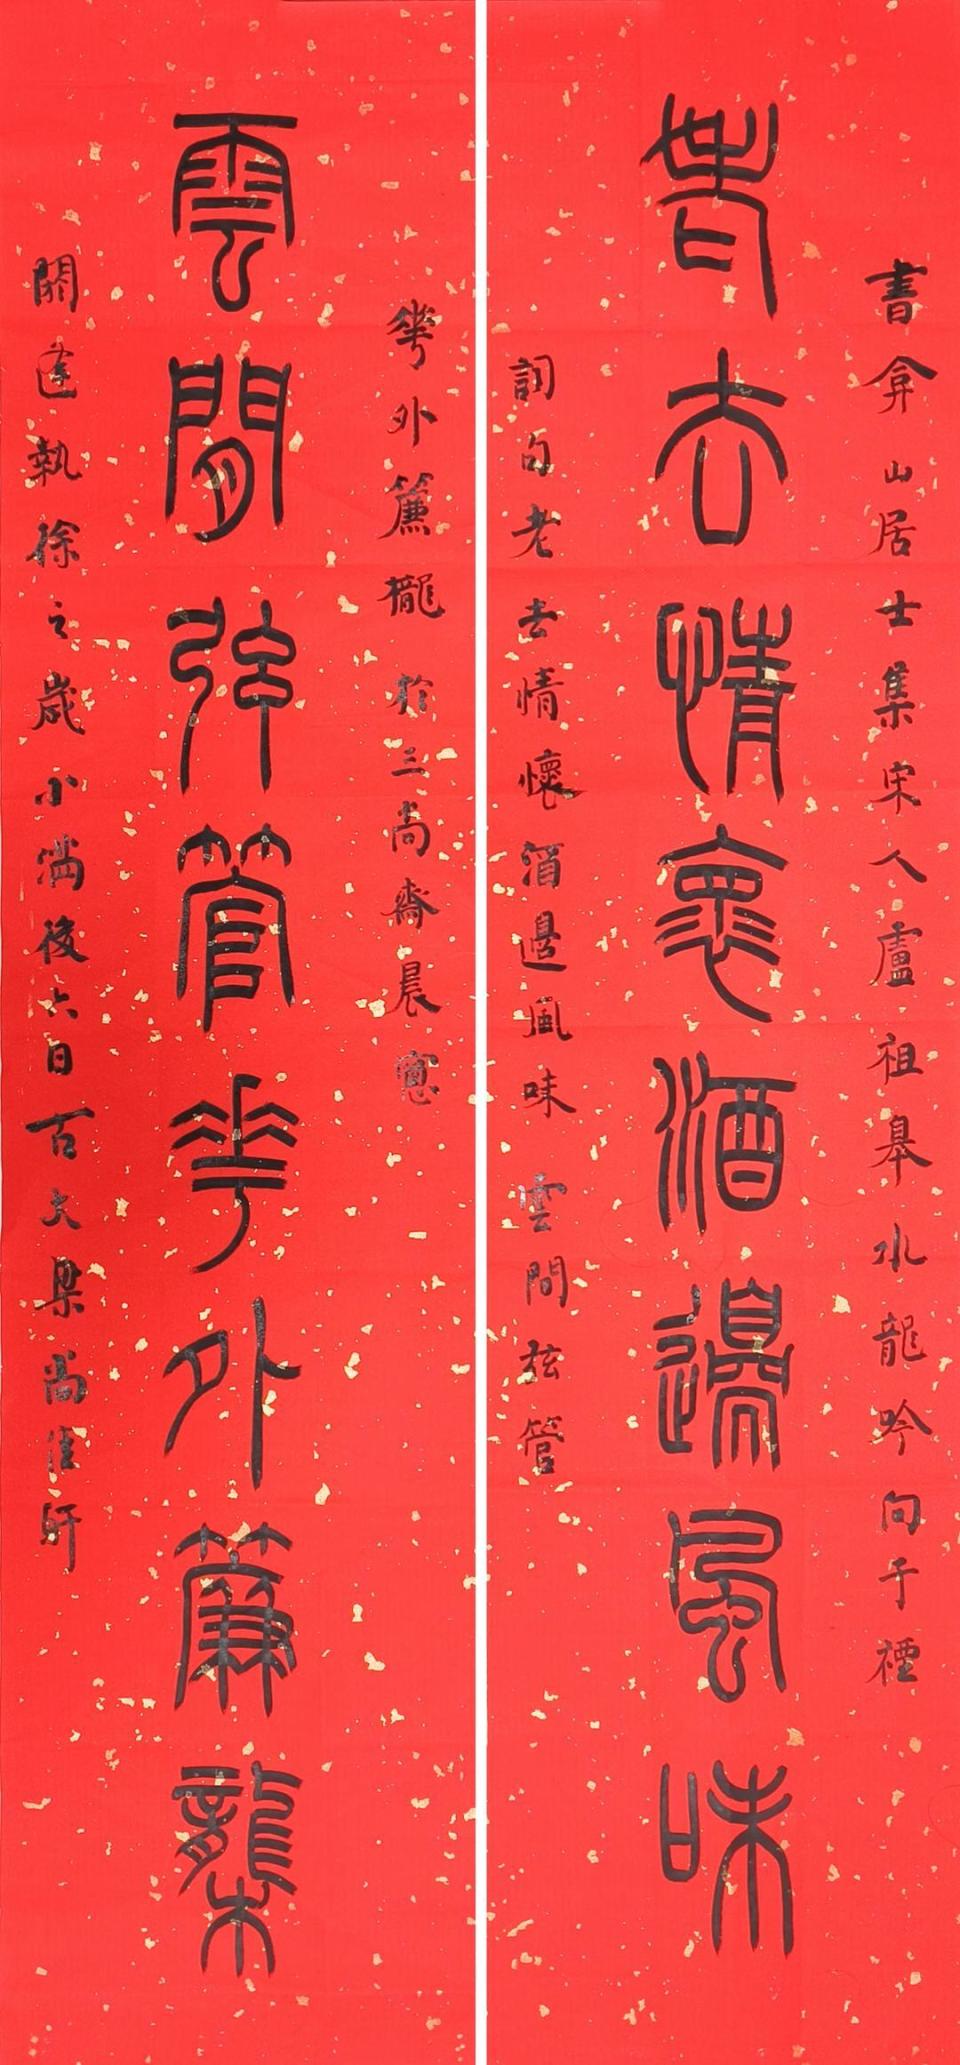 書弇山居士集宋人盧祖皋水龍吟向子禋
老去情懷酒邊風味
詞句老去情懷酒邊風味 雲間弦管
華外簾櫳 於三尚齋晨窗
雲間弦管華外簾櫳
閼逢執徐之歲小滿後六日古大梁尚佳軒